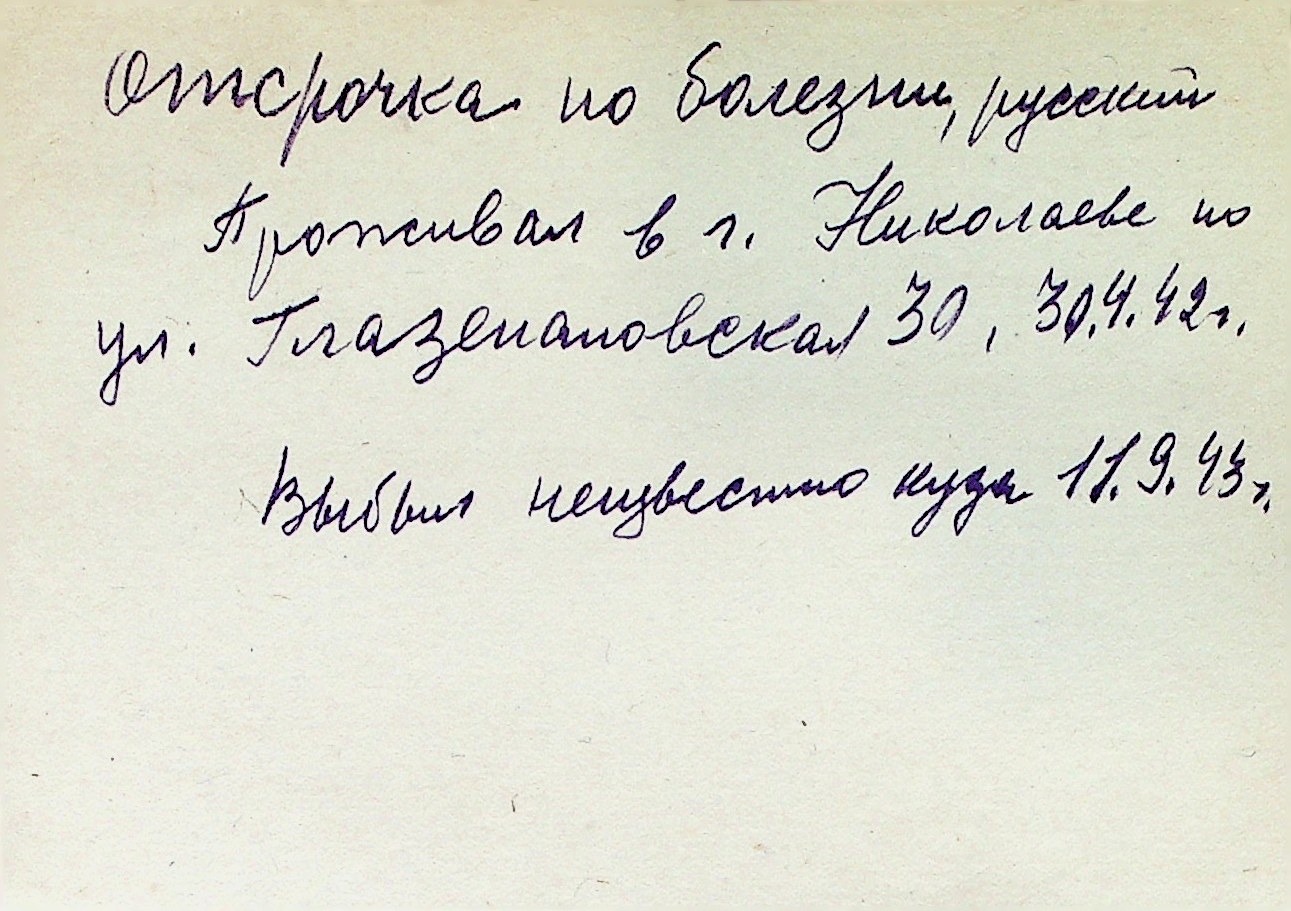 Отсрочка по болезни, русский
Проживал в г. Николаеве по
ул. Глазенаповская 30, 30.4.42г.
Выбыл неизвестно куда 11.9.43г.